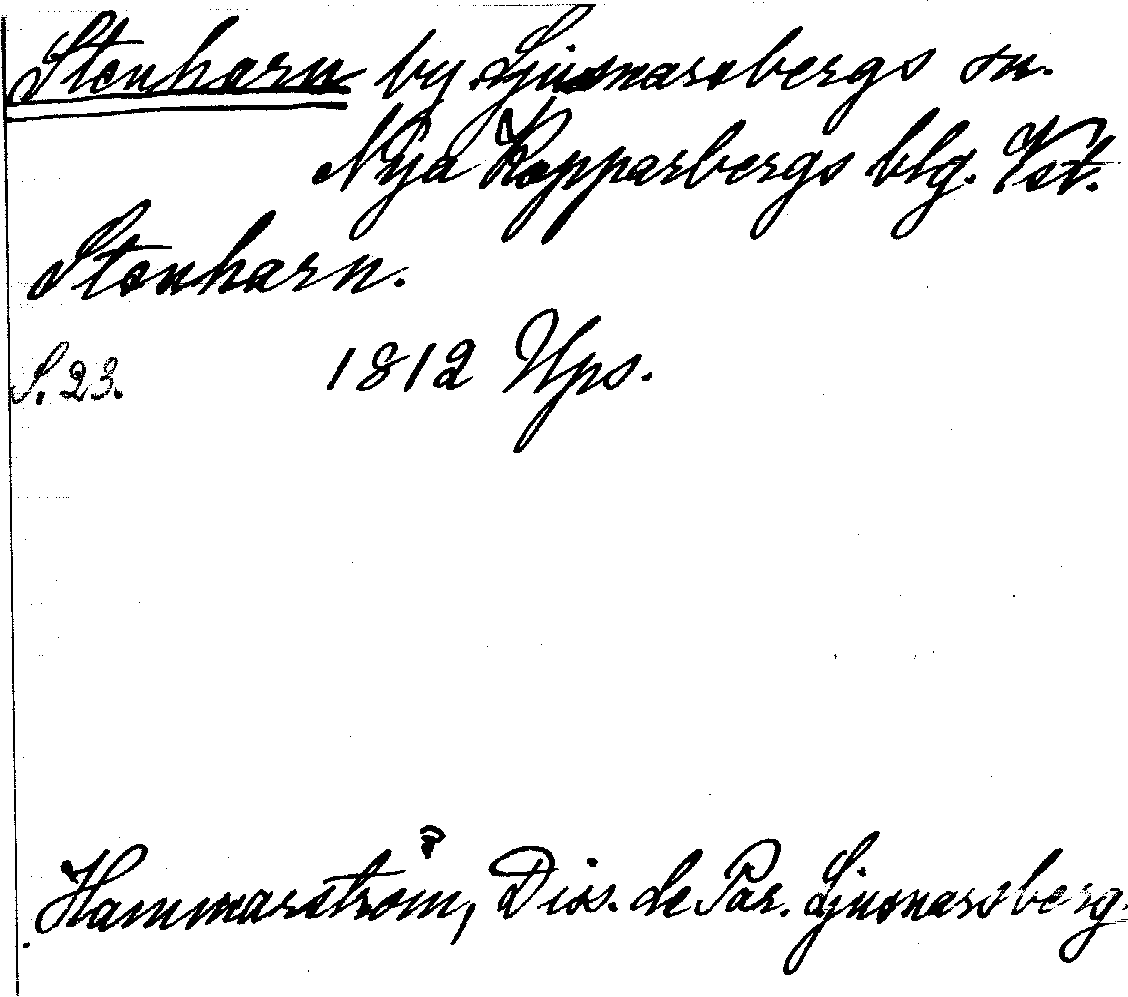 Stenharn by Ljusnarsbergs sn.
Nya Kopparbergs blg. Vst.
Stenharn.
S. 23. 1812 Ups.
Hammarström, Diss. de Par. Ljusnarsberg.